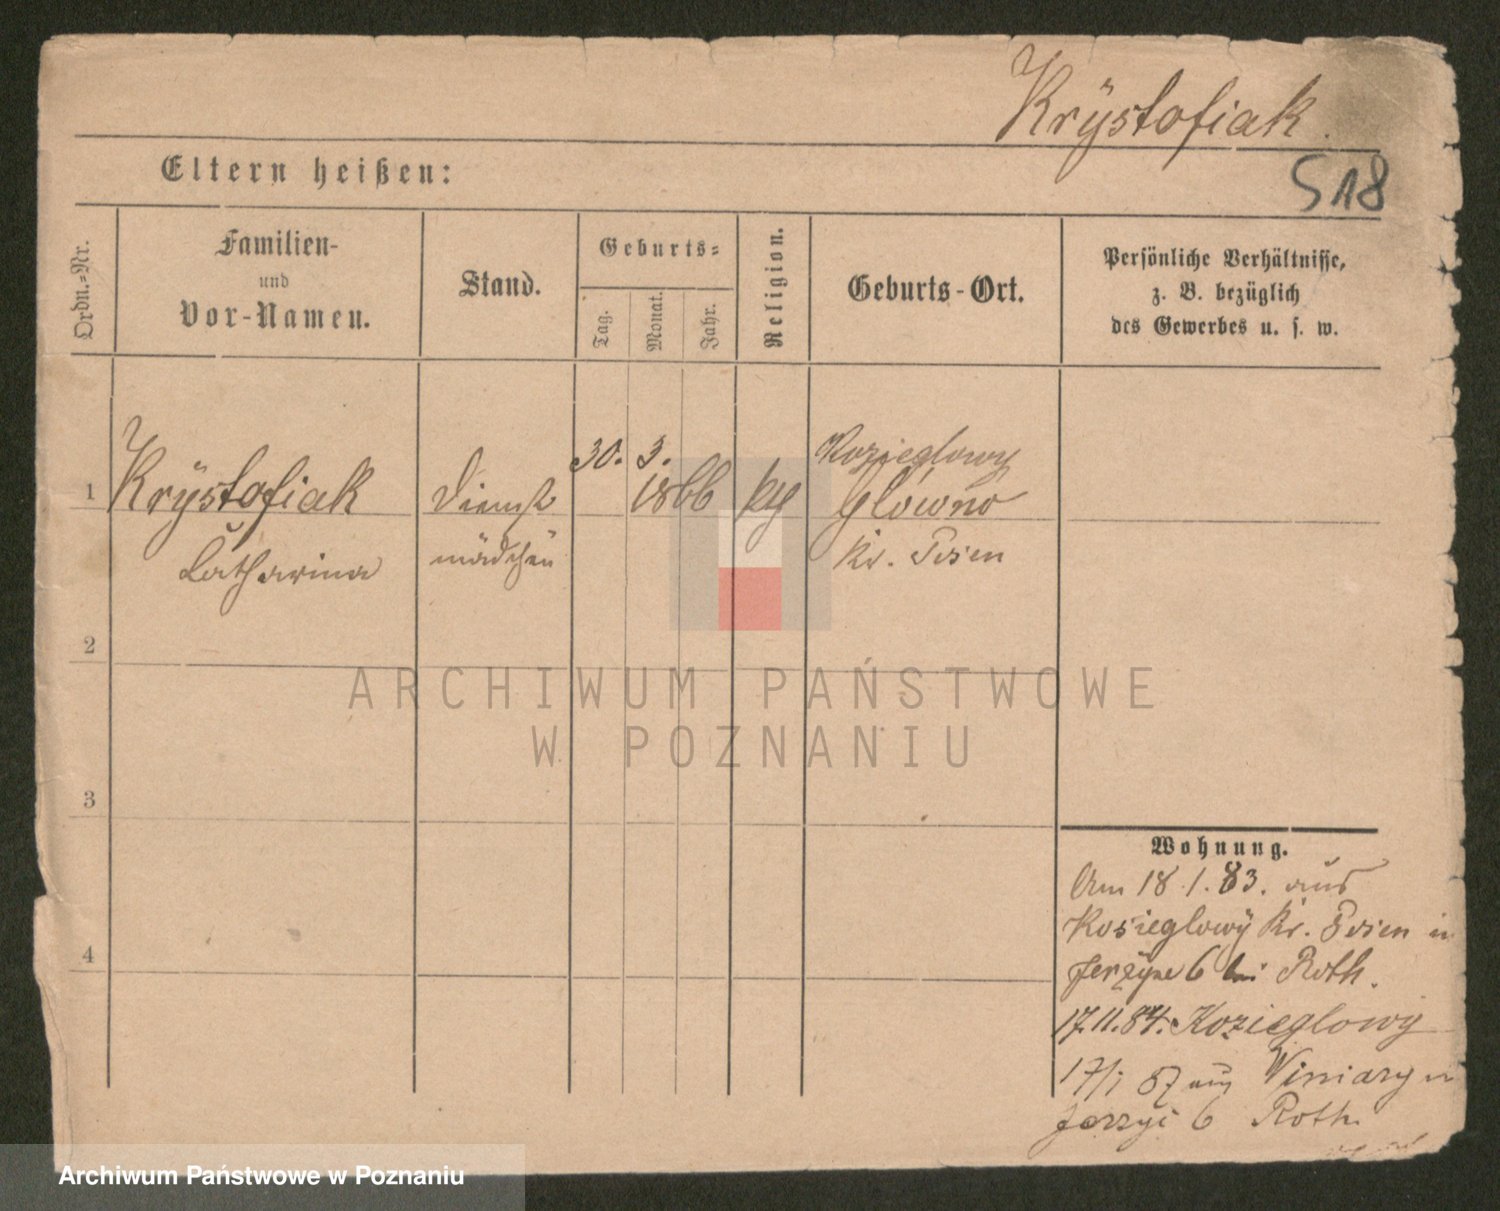 Krÿstofiak.
518
Eltern heißen:
Ordn.-Nr.
Familien-
und
Vor-Namen.
Stand.
Geburts-
Tag.
Monat.
Jahr.
Religion.
Geburts-Ort.
Persönliche Verhältnisse,
z. B. bezüglich
des Gewerbes u. s. w.
1
Krÿstofiak
Catharina
Dienst
mädchen
30. 3.
1866
Kozieglowy
Glówno
Kr. Posen
2
3
4
ARCHIWUM PAŃSTWOWE
W POZNANIU
Wohnung.
Am 18.1.83. aus
Kosieglowÿ Kr. Posen in
6 bei Roth.
17.11.84. Kozieglowy
17/1 87 aus Winiary
6 Roth.
Archiwum Państwowe w Poznaniu